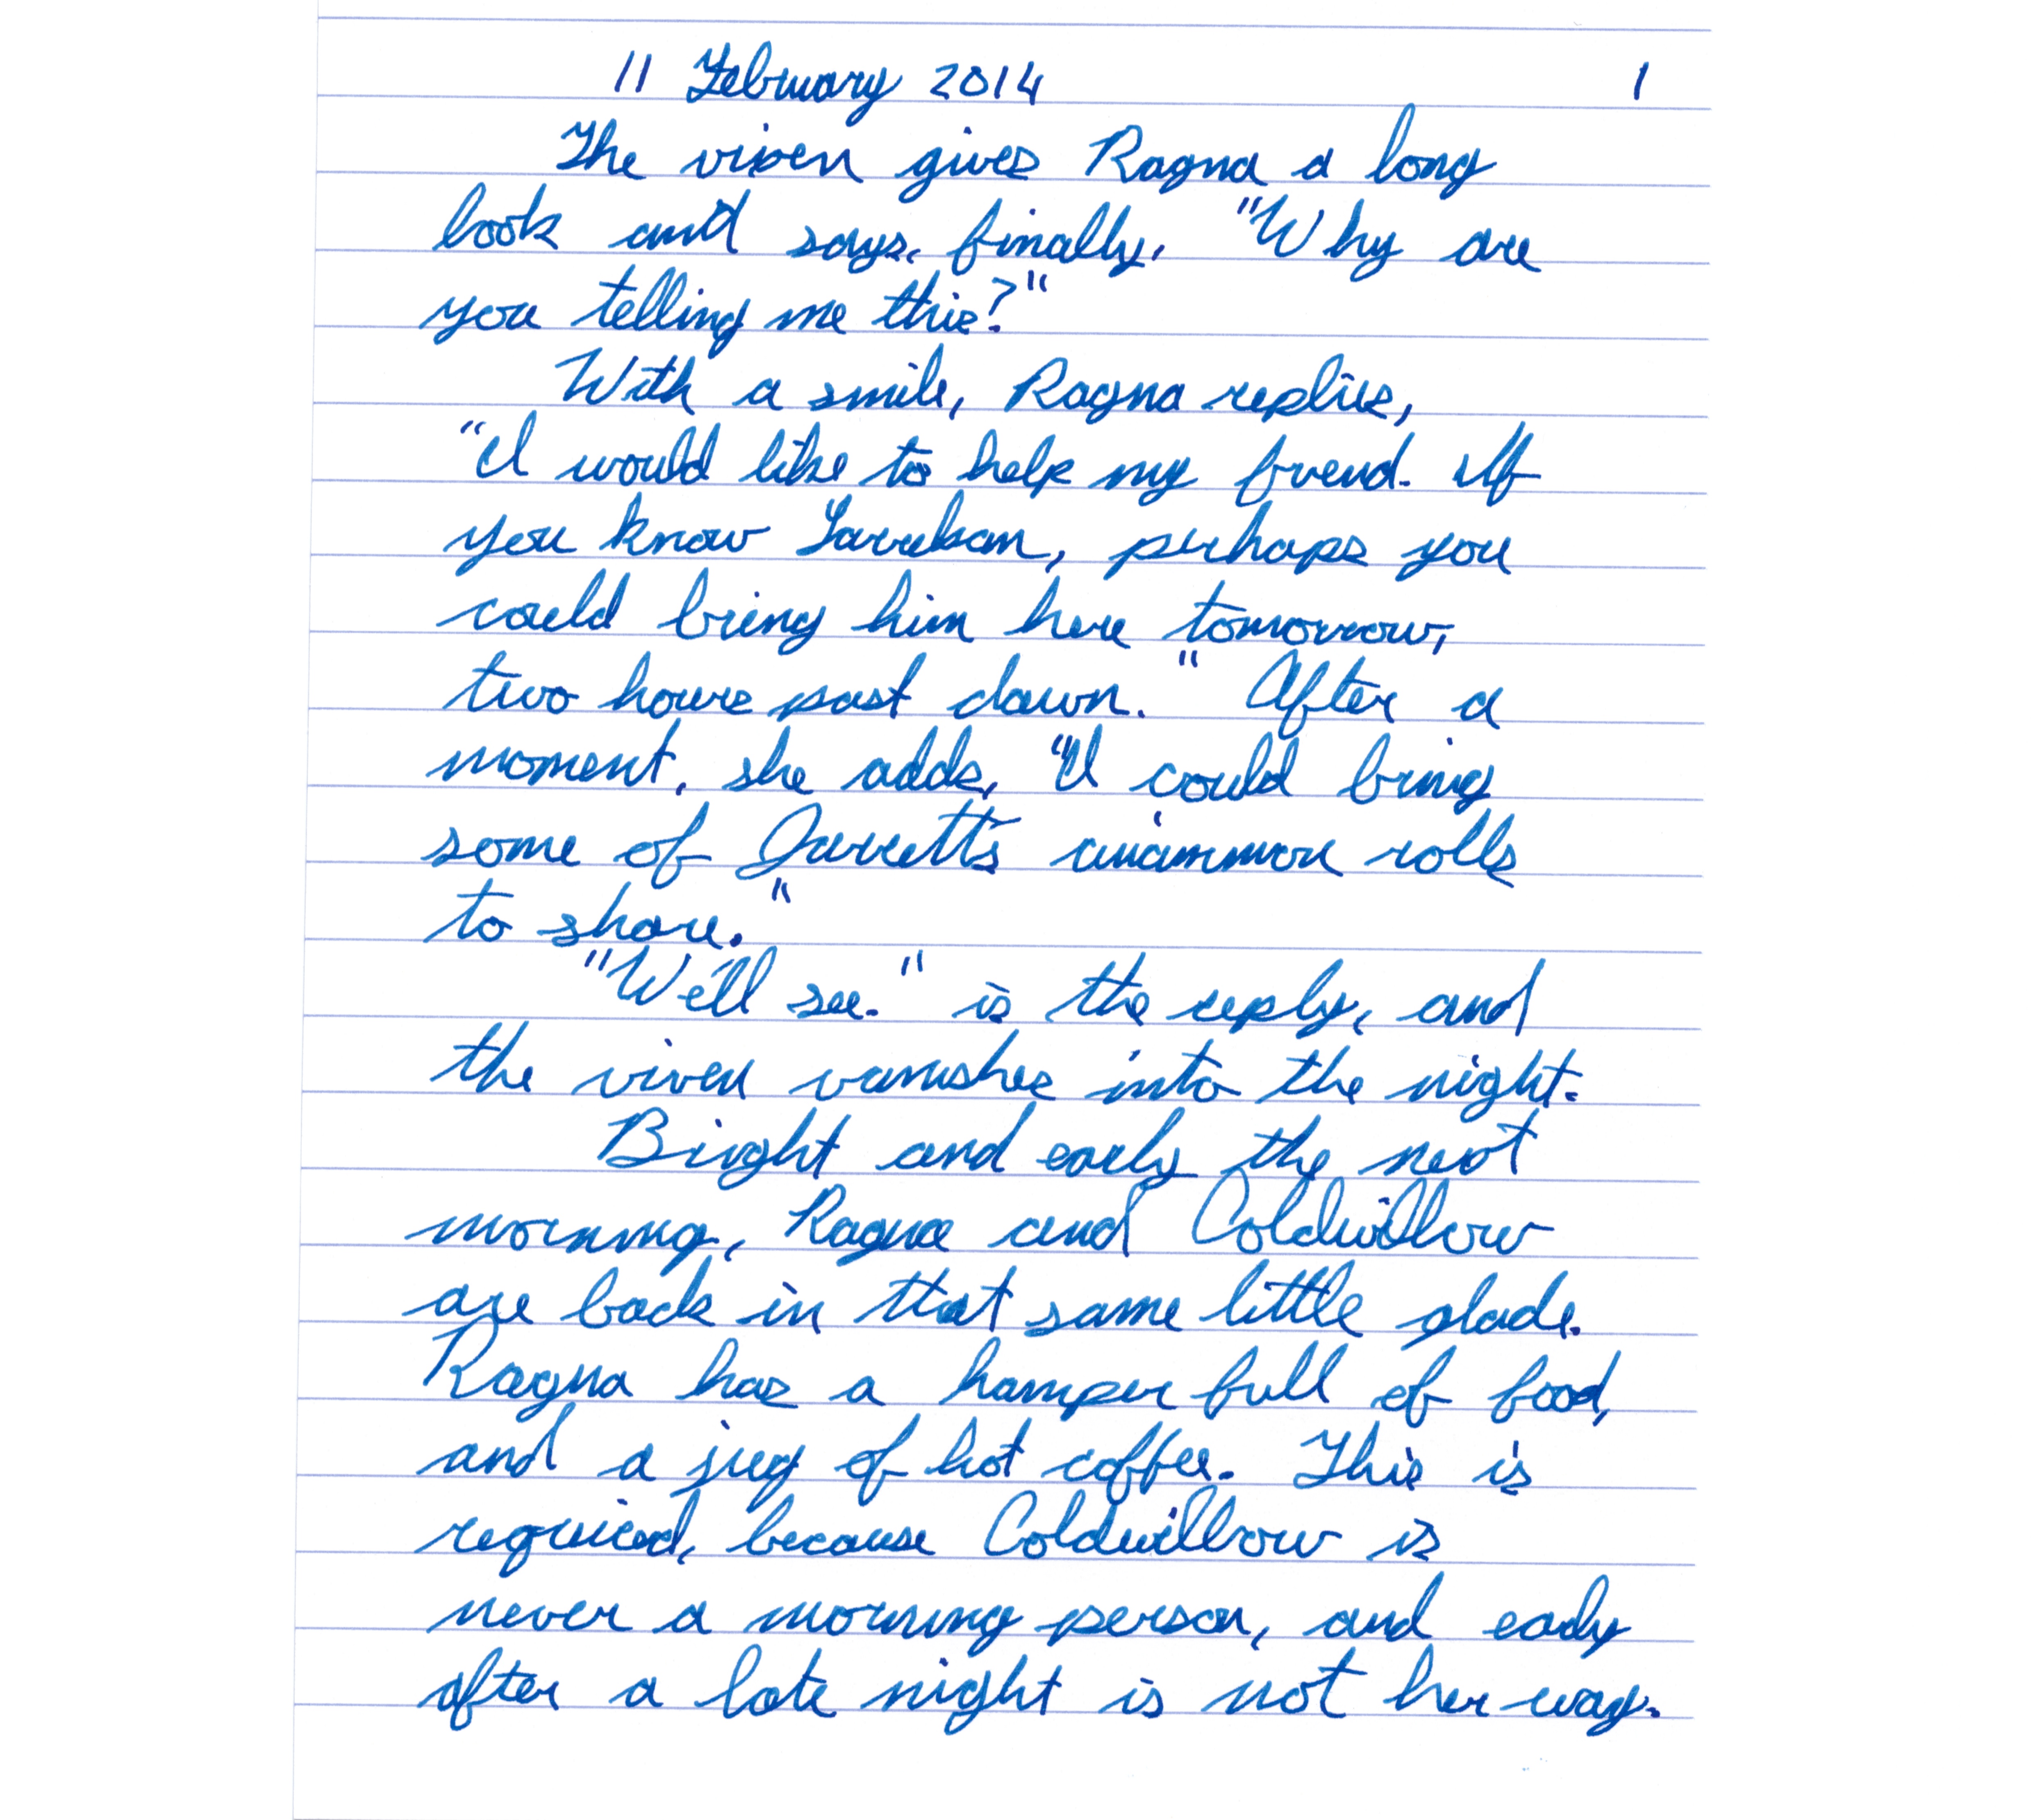 11 February 2014 1
The vixen gives Ragna a long
look and says, finally, "Why are
you telling me this?"
With a smile, Ragna replies,
"I would like to help my friend. If
you know, perhaps you
could bring him here tomorrow,
two hours past dawn." After a
moment, she adds, "I could bring
some of Jarrett's cinammon rolls
to share."
"We'll see." is the reply, and
the vixen vanishes into the night.
Bright and early the next
morning, Ragna and Coldwillow
are back in that same little glade.
Ragna has a hamper full of food,
and a jug of hot coffee. This is
required, because Coldwillow is
never a morning person, and early
after a late night is not her way.